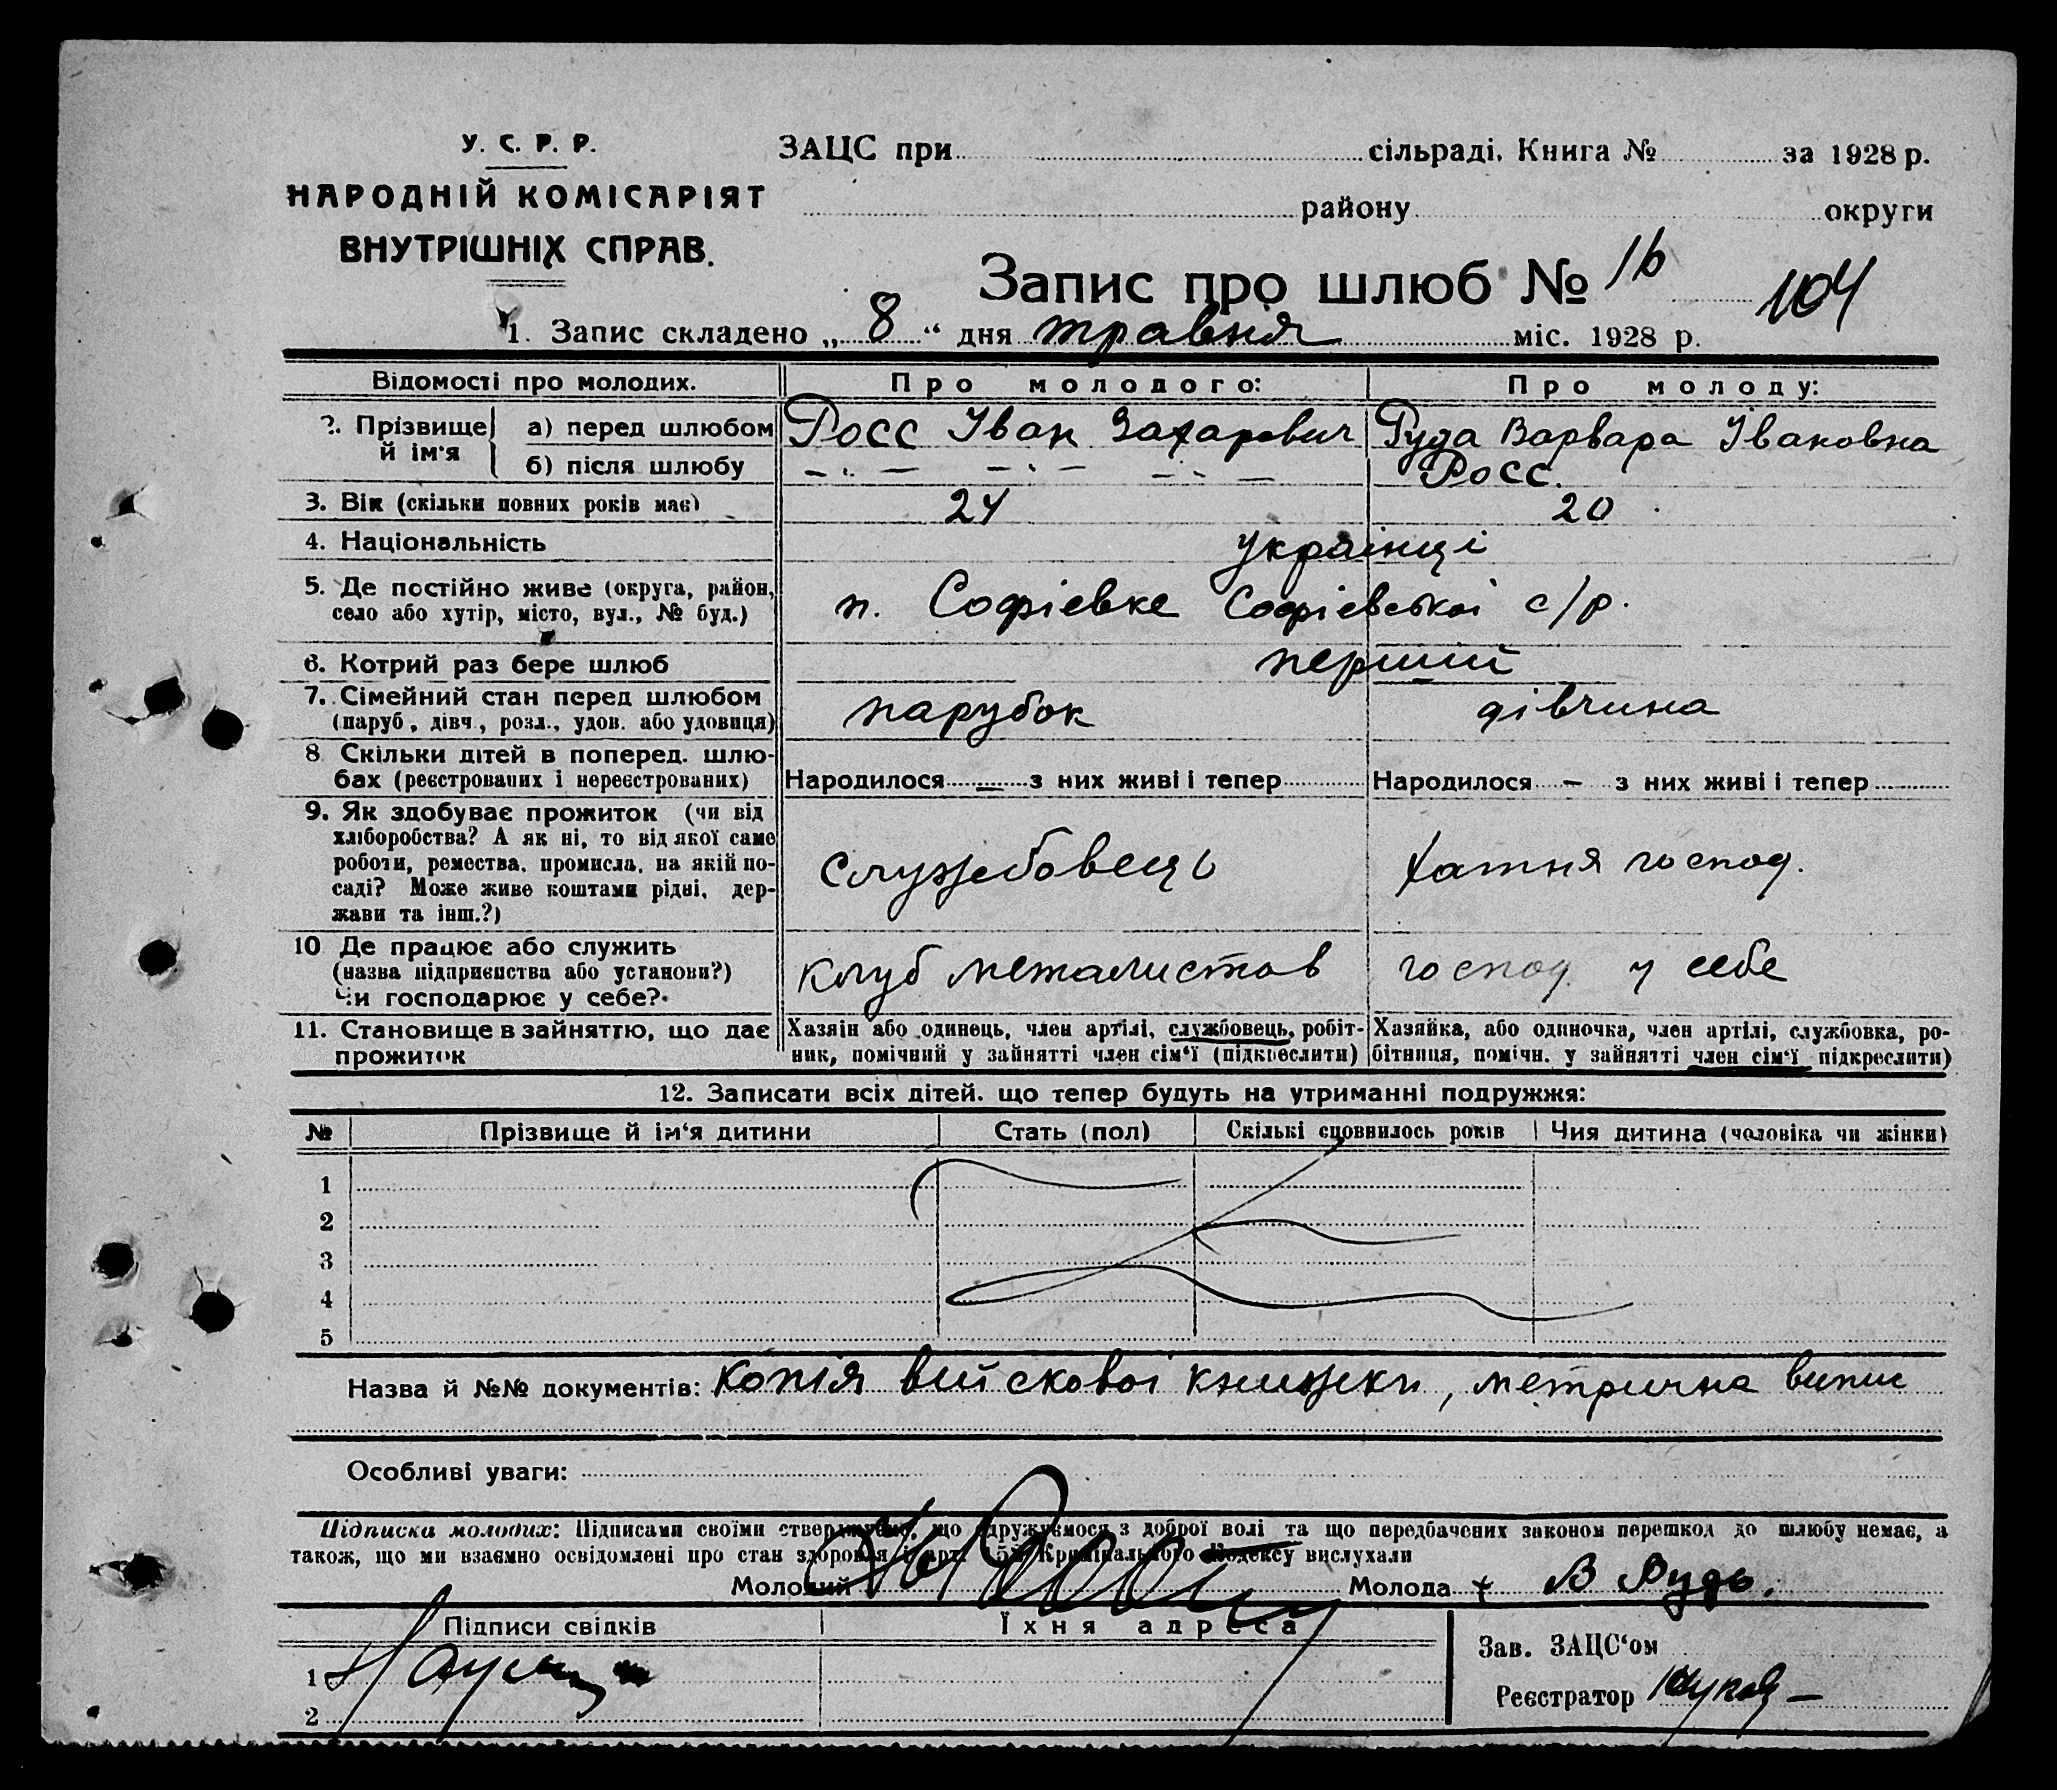 У. С. Р. Р.
НАРОДНІЙ КОМІСАРІЯТ
ВНУТРІШНІХ СПРАВ.
ЗАЦС при сільраді. Книга № за 1928 р.
району округи
Запис про шлюб № 16
104
1. Запис складено „ 8 “ дня травня міс. 1928 р.
Відомості про молодих. Про молодого: Про молоду:
2. Прізвище й ім'я а) перед шлюбом Росс Іван Захарович Руда Варвара Івановна
б) після шлюбу — . — — . — — . — Росс.
3. Вік (скільки повних років має) 24 20
4. Національність українці
5. Де постійно живе (округа, район, село або хутір, місто, вул., № буд.) п. Софієвке Софієвської с/р.
6. Котрий раз бере шлюб перший
7. Сімейний стан перед шлюбом (паруб, дівч., розл., удов. або удовиця) парубок дівчина
8. Скільки дітей в поперед. шлюбах (реєстрованих і нереєстрованих) Народилося — з них живі і тепер Народилося — з них живі і тепер
9. Як здобуває прожиток (чи від
хліборобства? А як ні, то від якої саме
роботи, ремества, промисла, на якій по-
саді? Може живе коштами рідні, дер-
жави та інш.?)
службовець хатня господ.
10 Де працює або служить
(назва підприємства або установи?)
Чи господарює у себе?
клуб металистов господ. у себе
11. Становище в зайняттю, що дає
прожиток
Хазяін або одинець, член артілі, службовець, робіт-
ник, помічний у зайнятті член сім'ї (підкреслити)
Хазяйка, або одиночка, член артілі, службовка, ро-
бітниця, помічн. у зайнятті член сім'ї підкреслити)
12. Записати всіх дітей. що тепер будуть на утриманні подружжя:
№ Прізвище й ім'я дитини Стать (пол) Скількі сповнилось років Чия дитина (чоловіка чи жінки)
1
2
3
4
5
Назва й №№ документів: Копія війскової книжки, метрична випис
Особливі уваги:
Підписка молодих: Підписами своїми стверджуємо, що одружуємося з доброї волі та що передбачених законом перешкод до шлюбу немає, а
також, що ми взаємно освідомлені про стан здоров'я і арт. Кримінального Кодексу вислухали
Молодий Молода + В Рудь.
Підписи свідків Їхня адреса
1
2
Зав. ЗАЦС'ом
Реєстратор